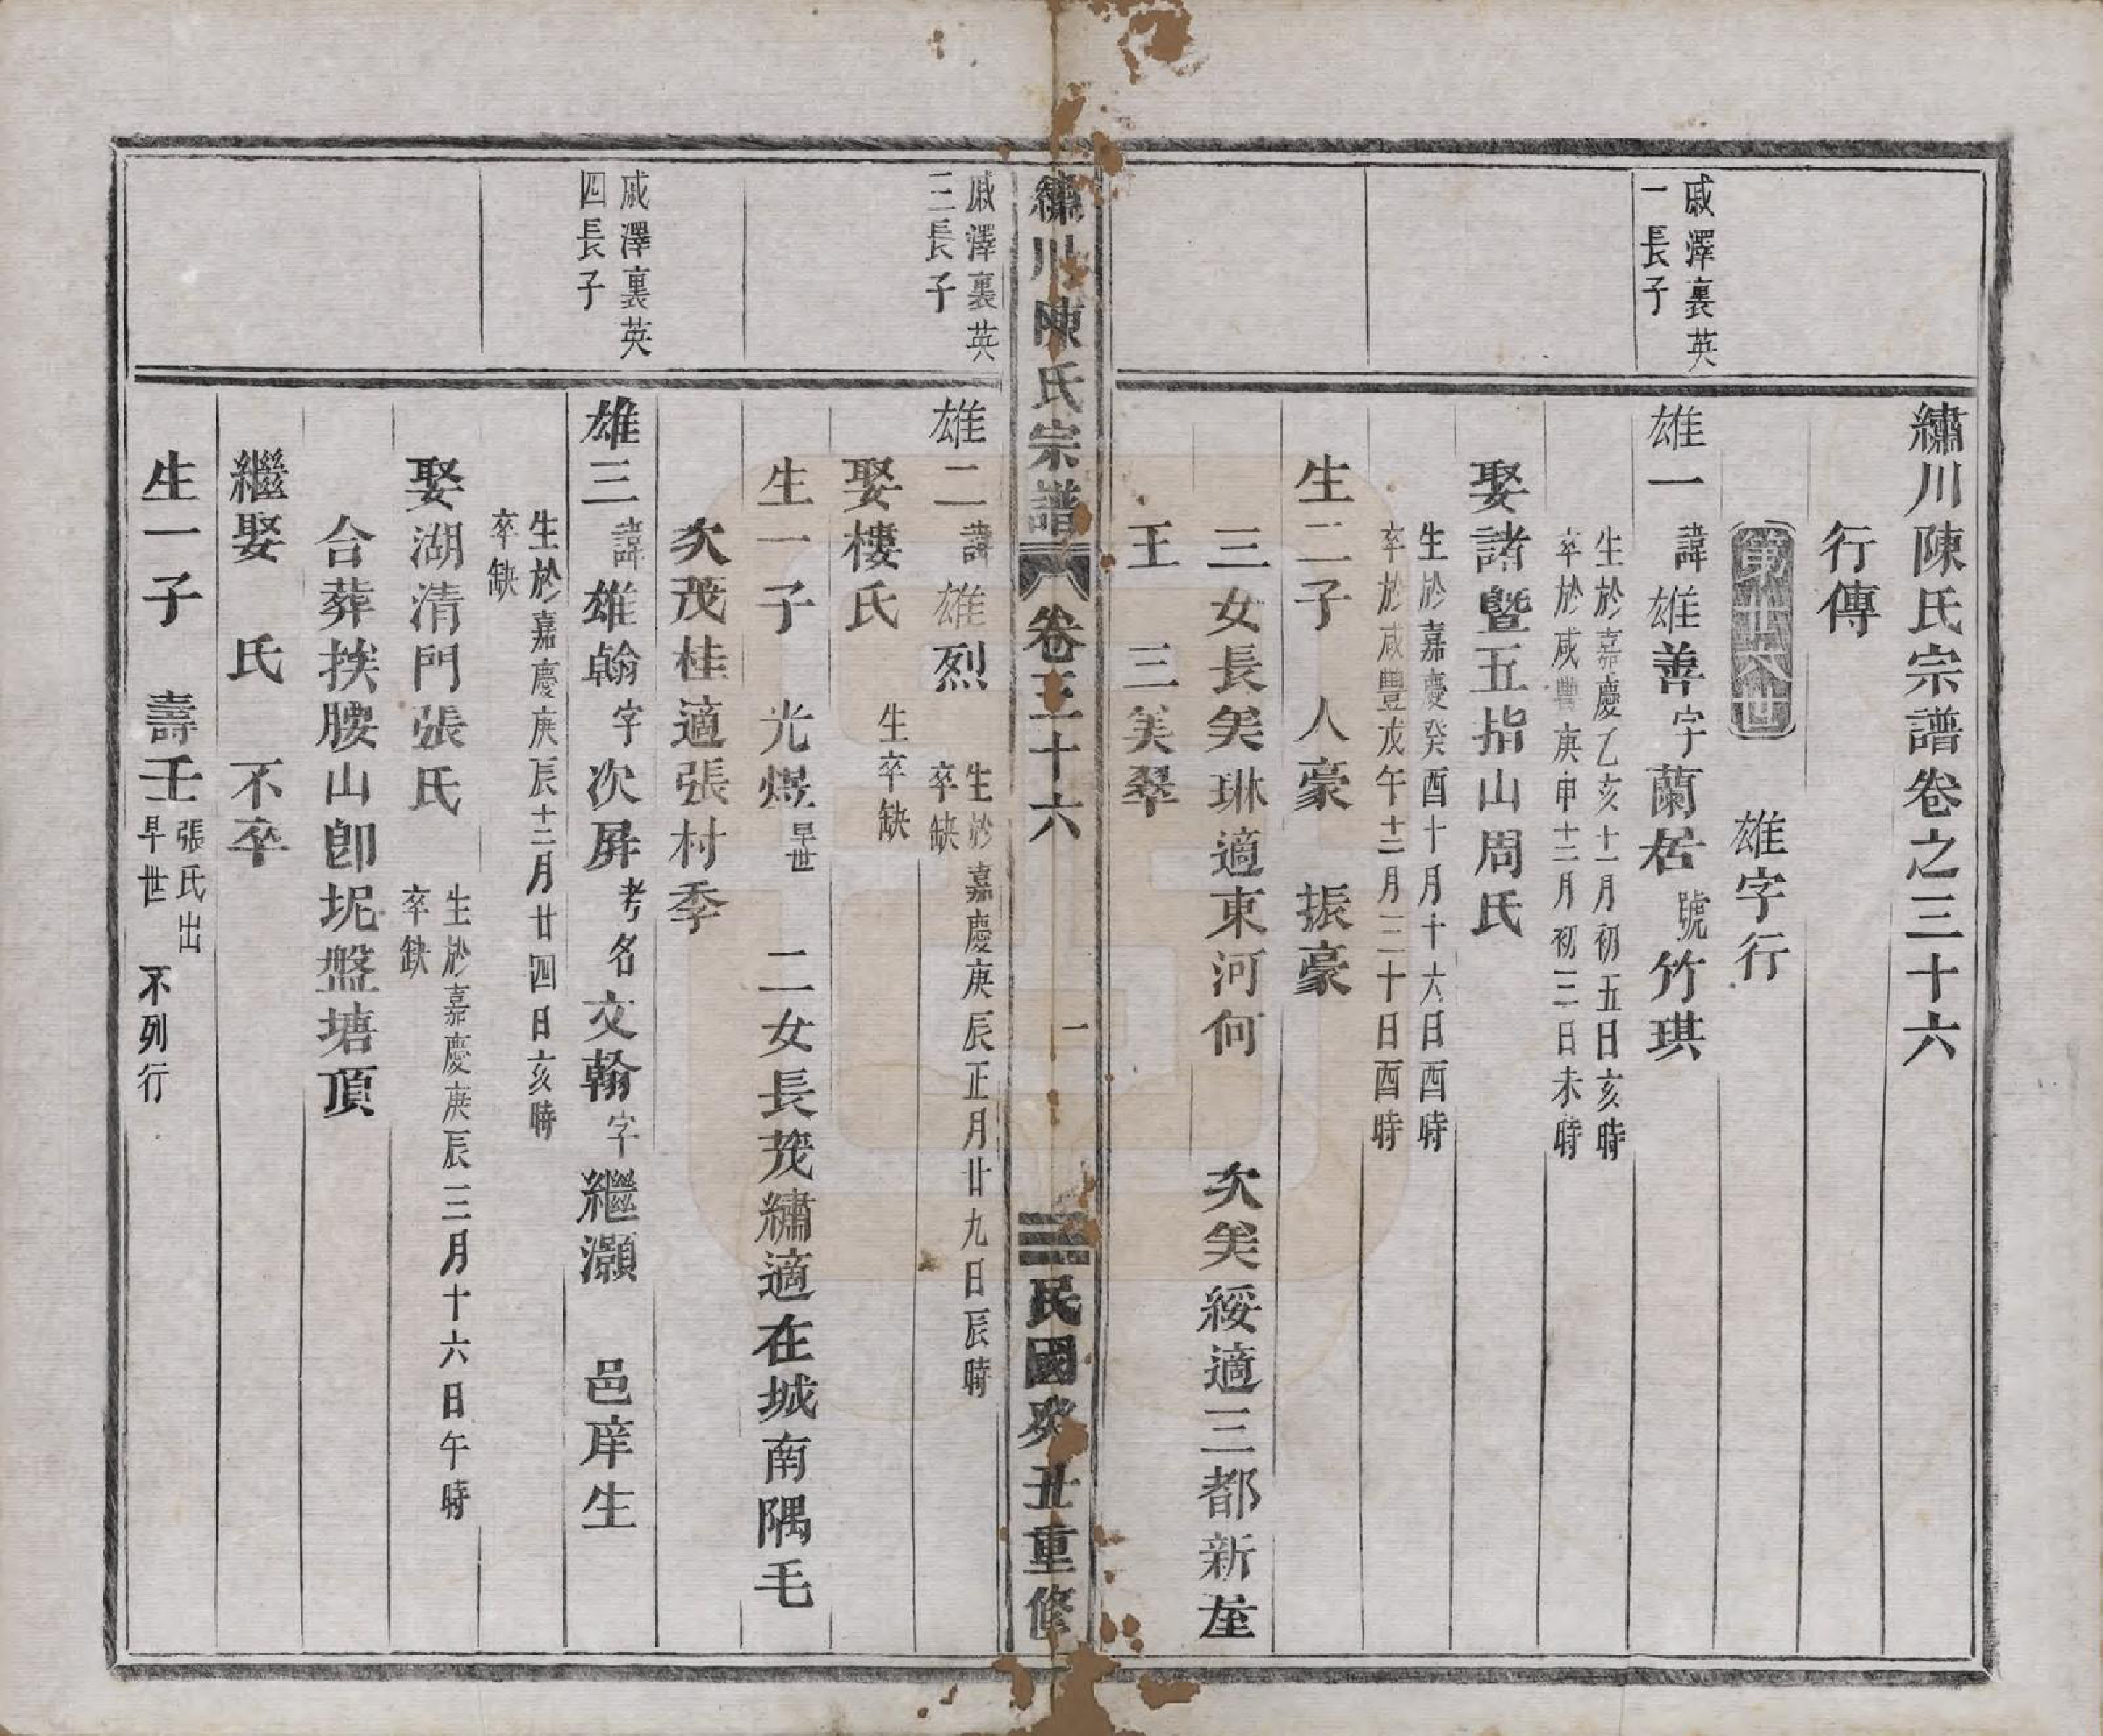 繡川陳氏宗譜卷之三十六
行傳
第廿六世
雄字行
戚澤裏英
一長子
雄一諱雄善字蘭居號竹琪
生於嘉慶乙亥十一月初五日亥時
卒於咸豐庚申十二月初三日未時
娶諸暨五指山周氏
生於嘉慶癸酉十月十六日酉時
卒於咸豐戊午十二月二十日酉時
生二子 人豪 振豪
三女長美琳適東河何 次美綏適三都新屋
王 三美翠
繡川陳氏宗譜 卷三十六 一 民國癸丑重修
戚澤裏英
三長子
雄二諱雄烈
生於嘉慶庚辰正月廿九日辰時
卒缺
娶樓氏
生卒缺
生一子 光煜早世 二女長茂繡適在城南隅毛
次茂桂適張村季
戚澤裏英
四長子
雄三諱雄翰字次屏考名文翰字繼灝 邑庠生
生於嘉慶庚辰十二月廿四日亥時
卒缺
娶湖清門張氏
生於嘉慶庚辰三月十六日午時
卒缺
合葬挨腰山卽坭盤塘頂
繼娶 氏 不卒
生一子 壽壬
張氏出
早世
不列行